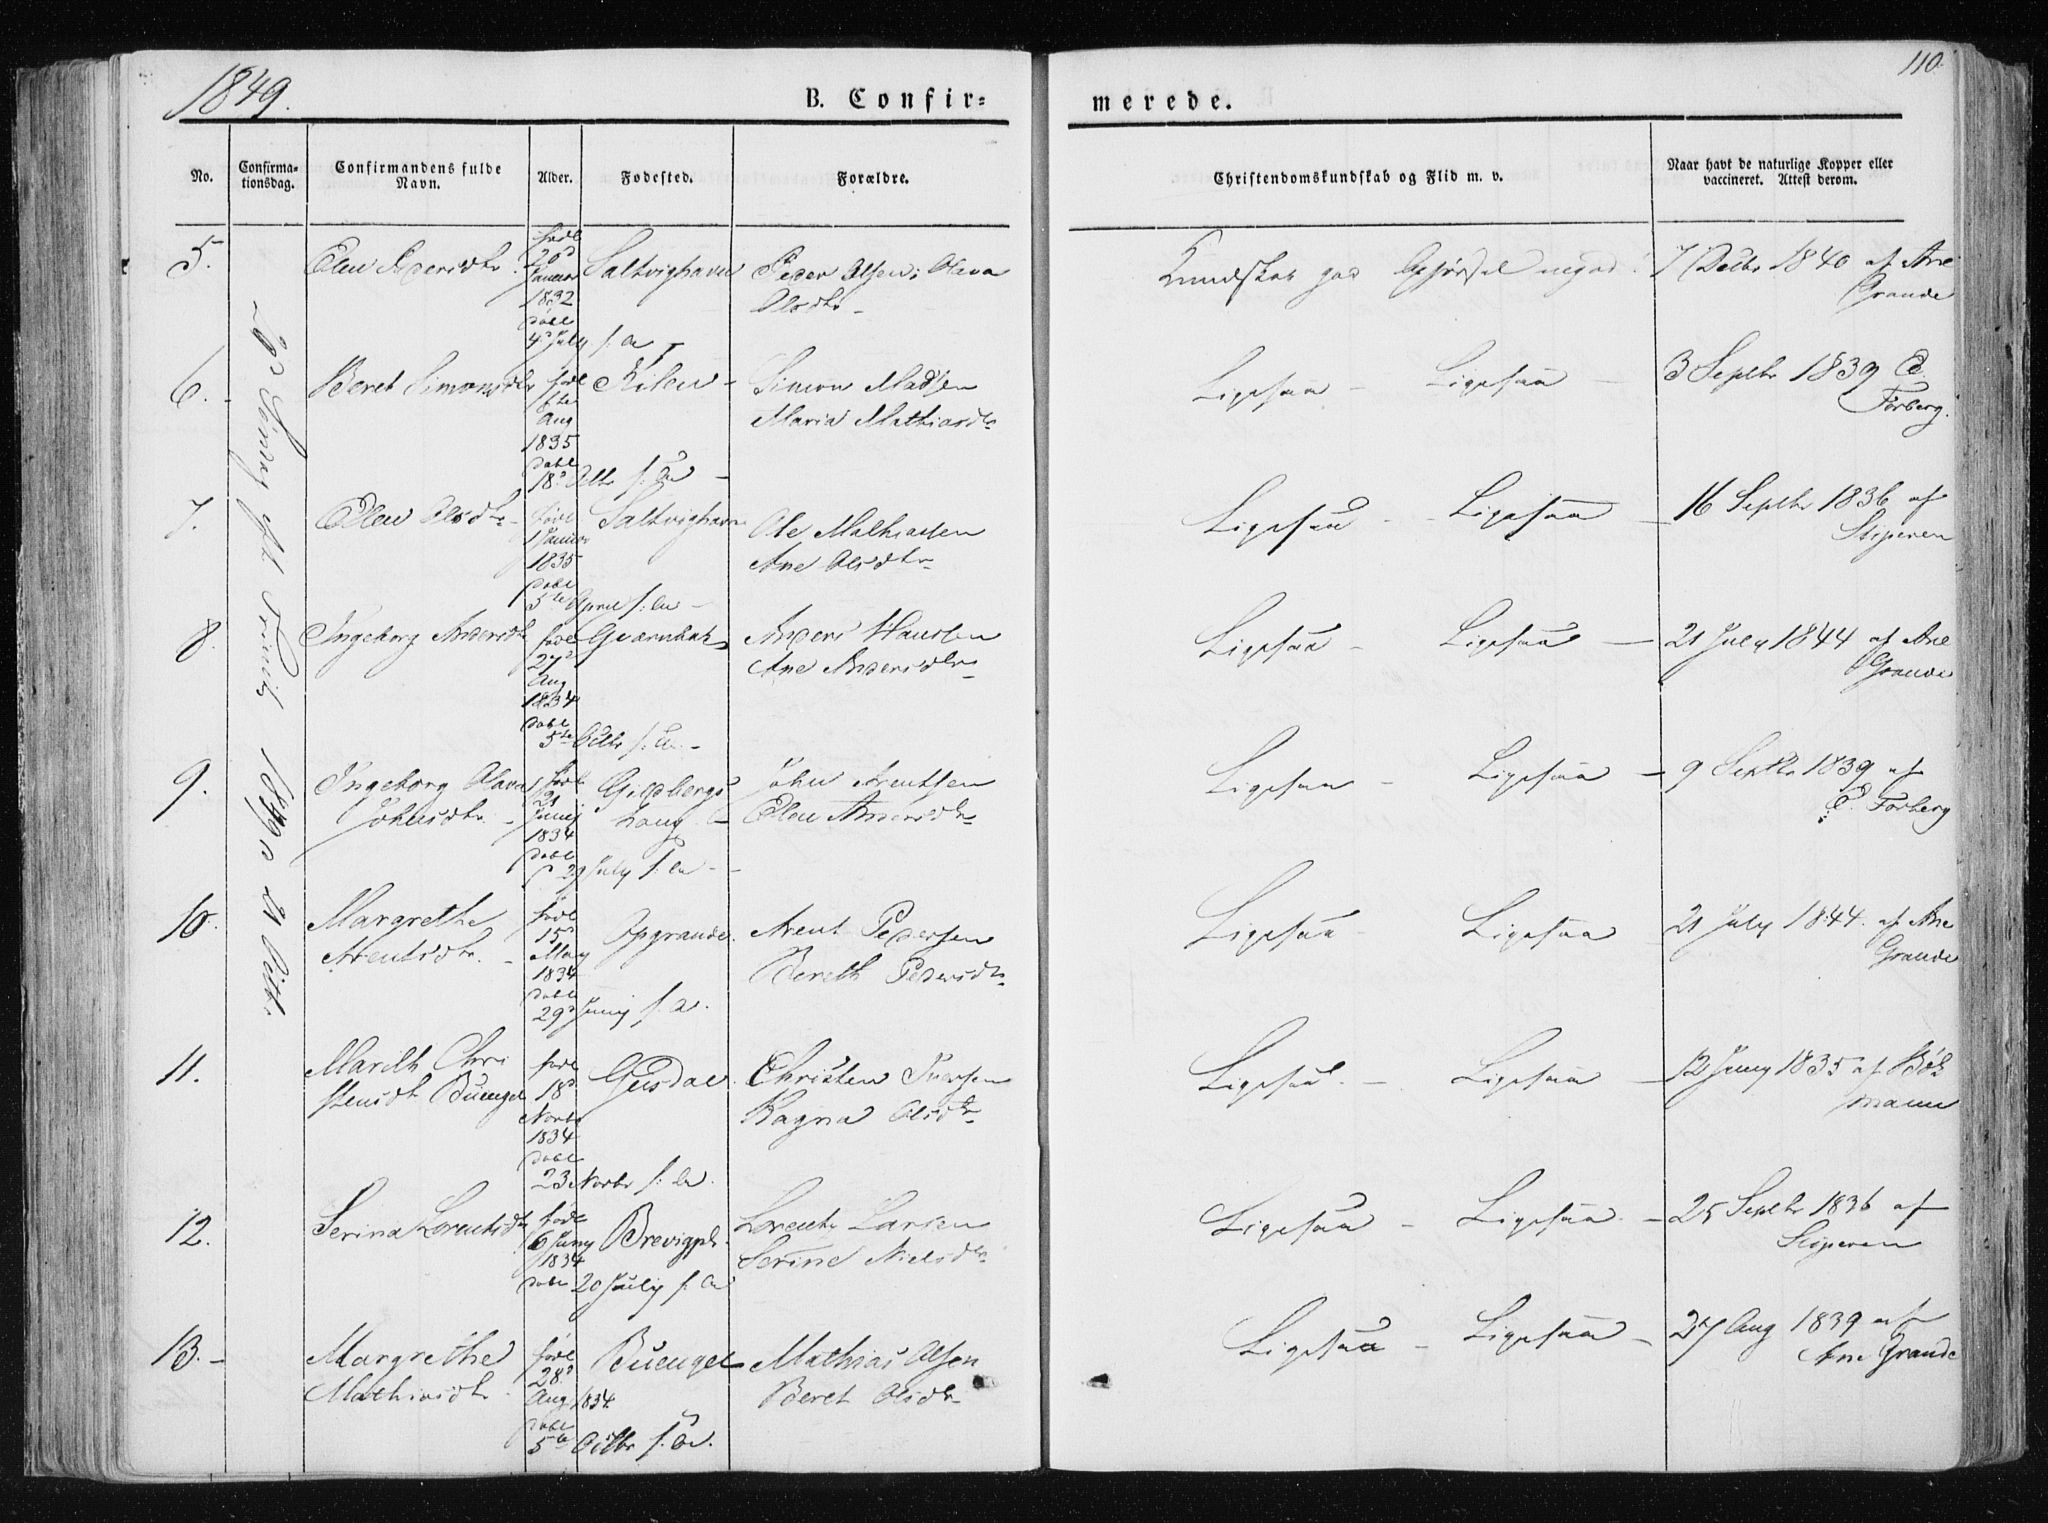 1849.
B. Confir=
merede.
110.
No.
Confirma=
tionsdag.
Confirmandens fulde
Navn.
Alder.
Fødested.
Forældre.
Christendomskundskab og Flid m. v.
Naar havt de naturlige Kopper eller
vaccineret. Attest derom.
1849 d 21 Octbr.
5.
Elen Pedersdtr.
født
20d
Januar
1832
døbt
4d July s. A
Saltvighavn
Peder Olsen, Olava
Olsdtr
Kundskab god
7 Decbr 1840 af Ane
Grande
6.
Beret Simonsdtr
født
Aug
1835
døbt
18d Octb s: A
Kilen
Simon Madsen
Maria Mathiasdtr
Ligesaa – Ligesaa –
3 Septbr 1839 E
Forberg.
7.
Elen Olsdtr
født
1 Januar
1835
døbt
5te April s: A
Saltvighavn
Ole Mathiasen
Ane Olsdtr
Ligesaa – Ligesaa –
16 Septbr 1836 af
Stiperen
8.
Ingeborg Andersdtr
født
27d
Aug
1834
døbt
5te Octbr s: A. –
Anders Hansen
Ane Andersdtr
Ligesaa – Ligesaa –
21 July 1844 af Ane
Grande
9.
Ingeborg Olava
Johnsdtr. –
født
21
Junij
1834
døbt
29 July s. A –
Gildbergs
haug –
John Arentsen
Elen Andersdtr
Ligesaa – Ligesaa –
9 Septbr 1839 af
E. Forberg
10.
Margrethe
Arentsdtr. –
født
15d
May
1834
døbt
29d Junij s. A.
Opgrande.
Arent Pedersen
Bereth Pedersdtr
Ligesaa – Ligesaa
21 July 1844. af Ane
Grande
11.
Marith Chri
stensdt Buenget
født
18d
Novbr
1834
døbt
23 Novbr s: A.
Geisdal
Christen Iversen
Ragna Olsdtr
Ligesaa. – Ligesaa –
12 Juny 1835 af Bök
mann
12.
Serina Lorentsdtr
født
6 Juny
1834
døbt 20 Julij s. A
Brevigpl.
Lorents Larsen
Serine Nielsdtr
Ligesaa – Ligesaa –
25 Septbr 1836 af
Stiperen
13. –
Margrethe
Mathiasdtr
født
28d
Aug 1834.
døbt
5te Octbr s. A.
Buenget
Mathias Olsen
Beret Olsdtr
Ligesaa – Ligesaa –
27 Aug 1839 af
Ane Grande